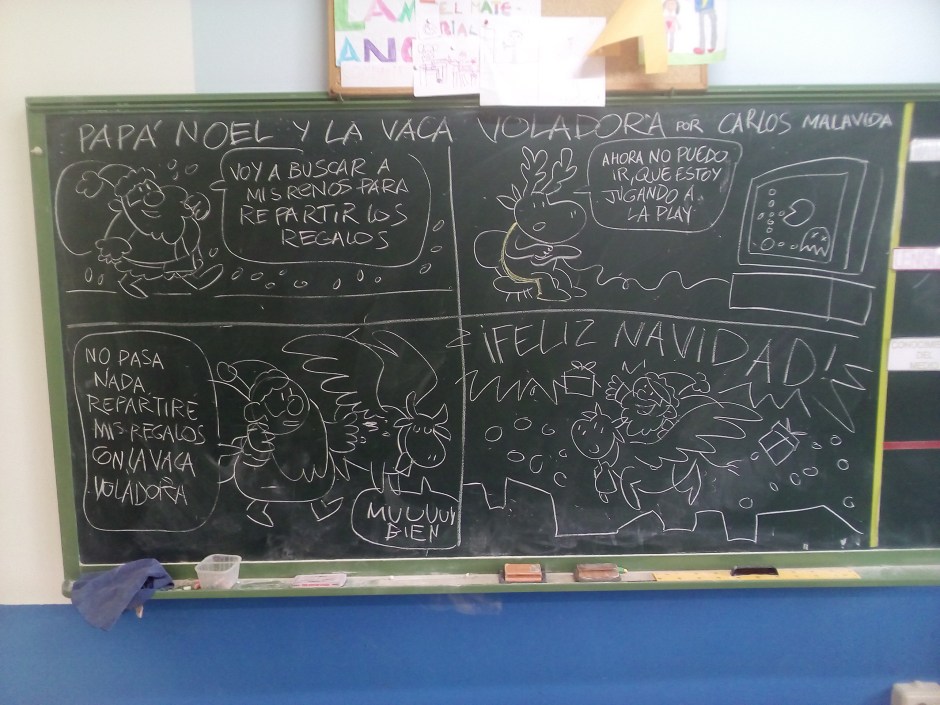 EL MATE-
RIAL
PAPÁ NOEL Y LA VACA VOLADORA POR CARLOS MALAVIDA
VOY A BUSCAR A
MIS RENOS PARA
REPARTIR LOS
REGALOS
AHORA NO PUEDO
IR, QUE ESTOY
JUGANDO A
LA PLAY
NO PASA
NADA
REPARTIRÉ
MIS REGALOS
CON LA VACA
VOLADORA
MUUUUY
BIEN
¡FELIZ NAVIDAD!